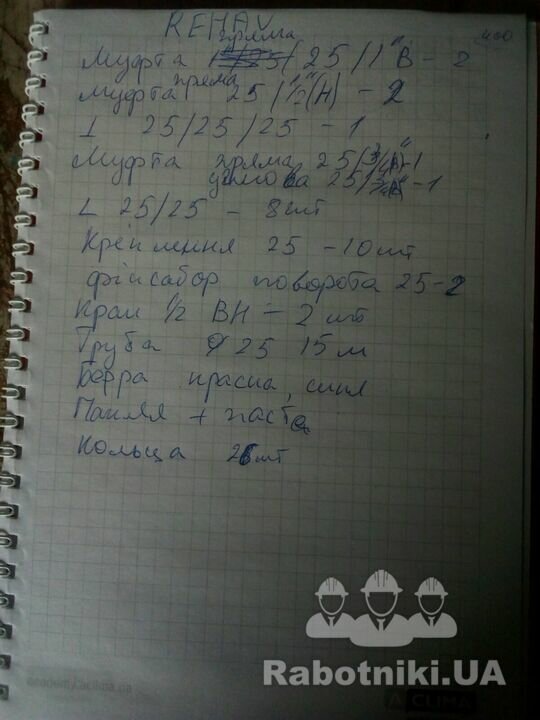 REHAU
400
Муфта пряма 25/1" В - 2
Муфта пряма 25/1/2"(Н) - 2
⊥ 25/25/25 - 1
Муфта пряма 25/3/4" - 1
углова 25/3/4" - 1
L 25/25 - 8 шт
Кріплення 25 - 10 шт
фіксатор поворота 25-2
Кран 1/2 ВН - 2 шт
Труба ф 25 15 м
красна, синя
Пакля + паста
Кольца 26 шт
Rabotniki.UA
academy.aclima.ua
ACLIMA